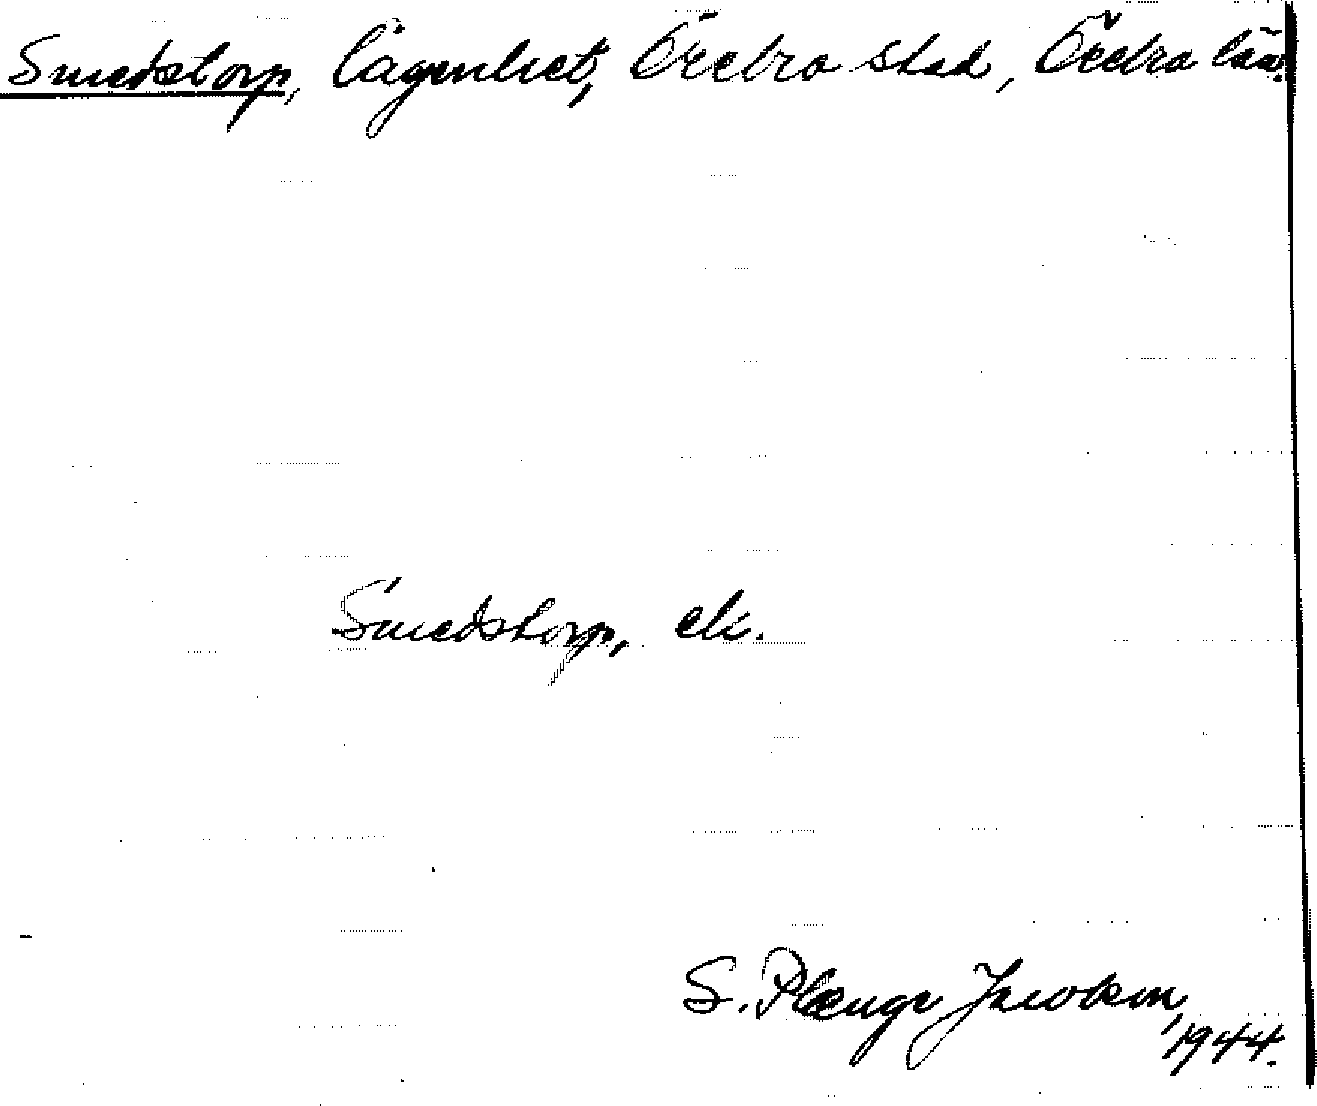 Smedstorp, lägenhet, Örebro stad, Örebro län.
Smedstorp, ek.
S. Plænge Jacobson,
1944.